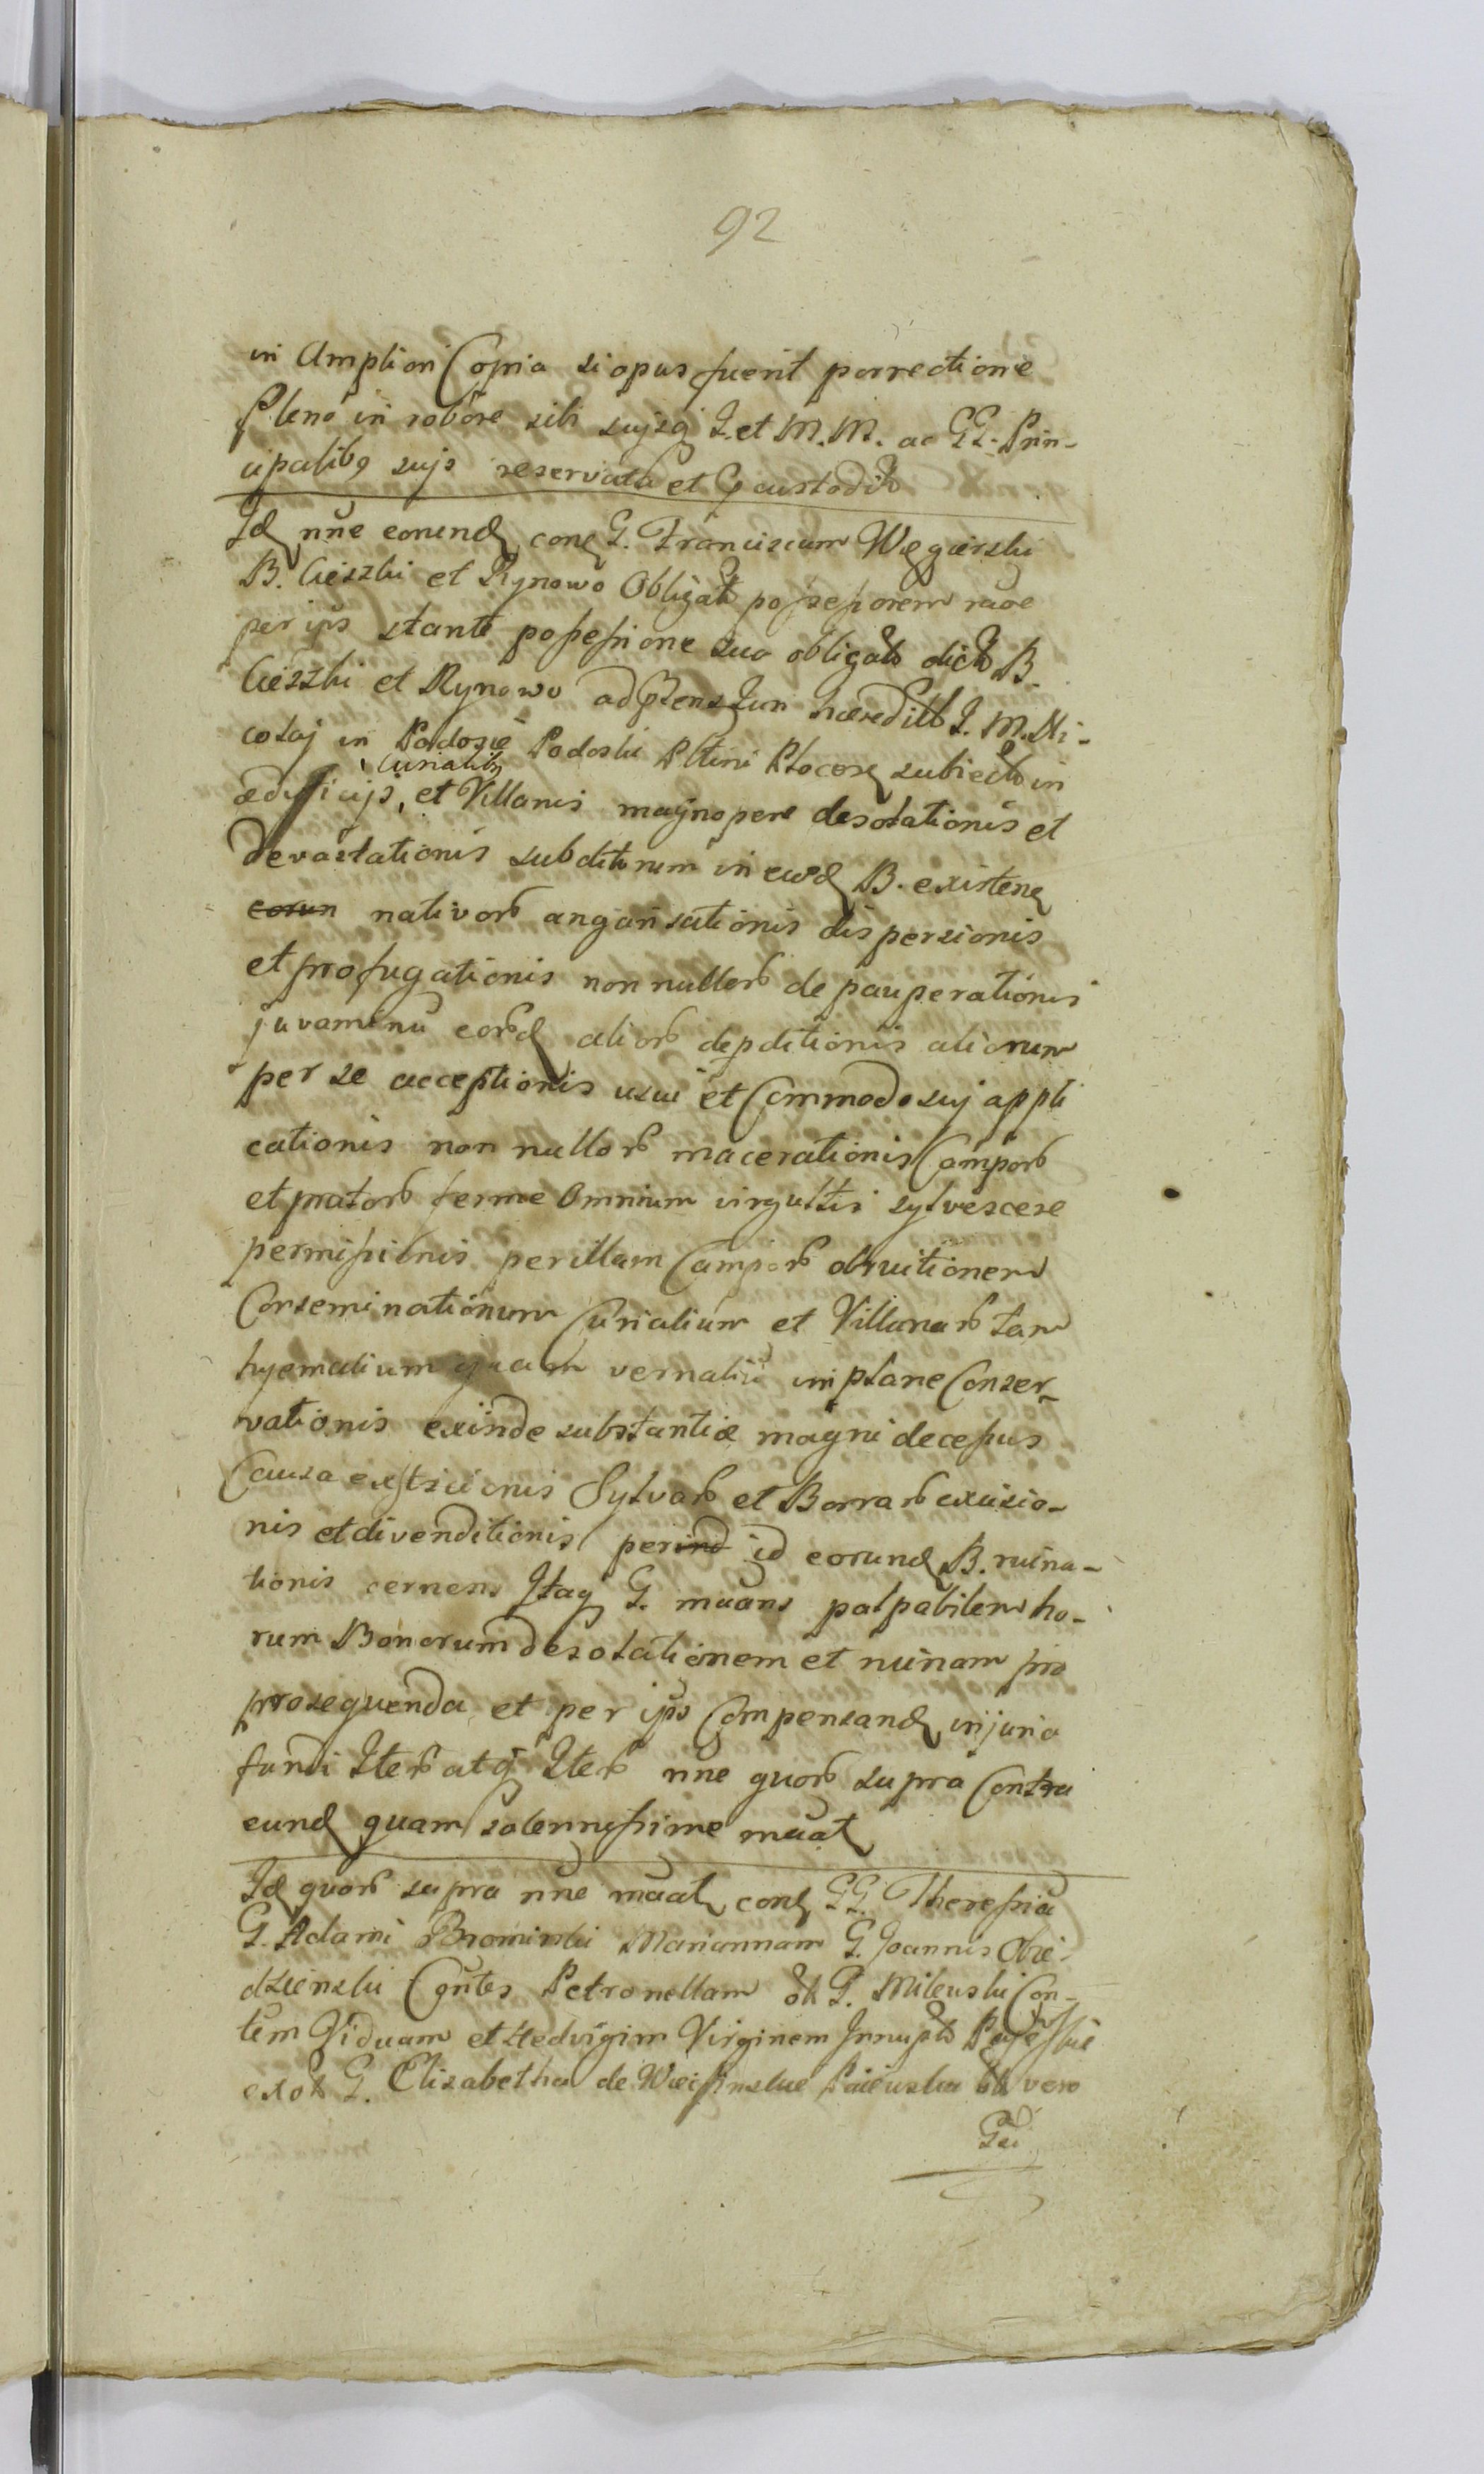 92
in Ampliori Copia si opus fuerit porrectione
Pleno in robore sibi suisq I. et M.M. ac GG. Prin-
cipalibq sujs reservata et custodito
Id nne eorund conq G. Franciscum Węgierski
B. Cieszki et Rynowo Obligat possessorem raoe
per ips stante possessione sua obligato dicto B.
Cieszki et Rynowo ad ptens Jun hæredit I. M. Ni-
colaj in Podosie Podoski Pltini Plocosq subiecto in
ædificijs, Curialibq et Villanis magnopere desolationis et
devastationis subditorum in eisd B. existenq
eorun nativor angarisationis dispersionis
et profugationis non nullor depauperationis
juvaminu eord alior depditionis aliorum
per se acceptionis usui et Commodo suj appli
cationis non nullor macerationis Campor
et prator ferme Omnium virgultis sylvescere
permissionis per illam Campor obruitionem
Conseminationum Curialium et Villanar tam
hyemalium quam vernaliu implane Conser-
vationis exinde substantiæ magni decessus
Causa Sylvar et Borrar excisio-
nis et divenditionis perind id eorund B. ruina-
tionis cernens Itaq G. maans palpabilem ho-
rum Bonorum desolationem et ruinam pro
prosequenda et per ips Compensand injuria
fundi Iter atq Iter nne quor supra Contra
eund quam solennissime maat
Id quor supra nne maat conq GG. Theressia
G. Adami Bromirski Mariannam G. Joannis Obie-
dzienski Contes Petronellam ol G. Milewski Con-
tem Viduam et Hedvigim Virginem Innupt
ex ol G. Elisabetha de ol vero
Gdi